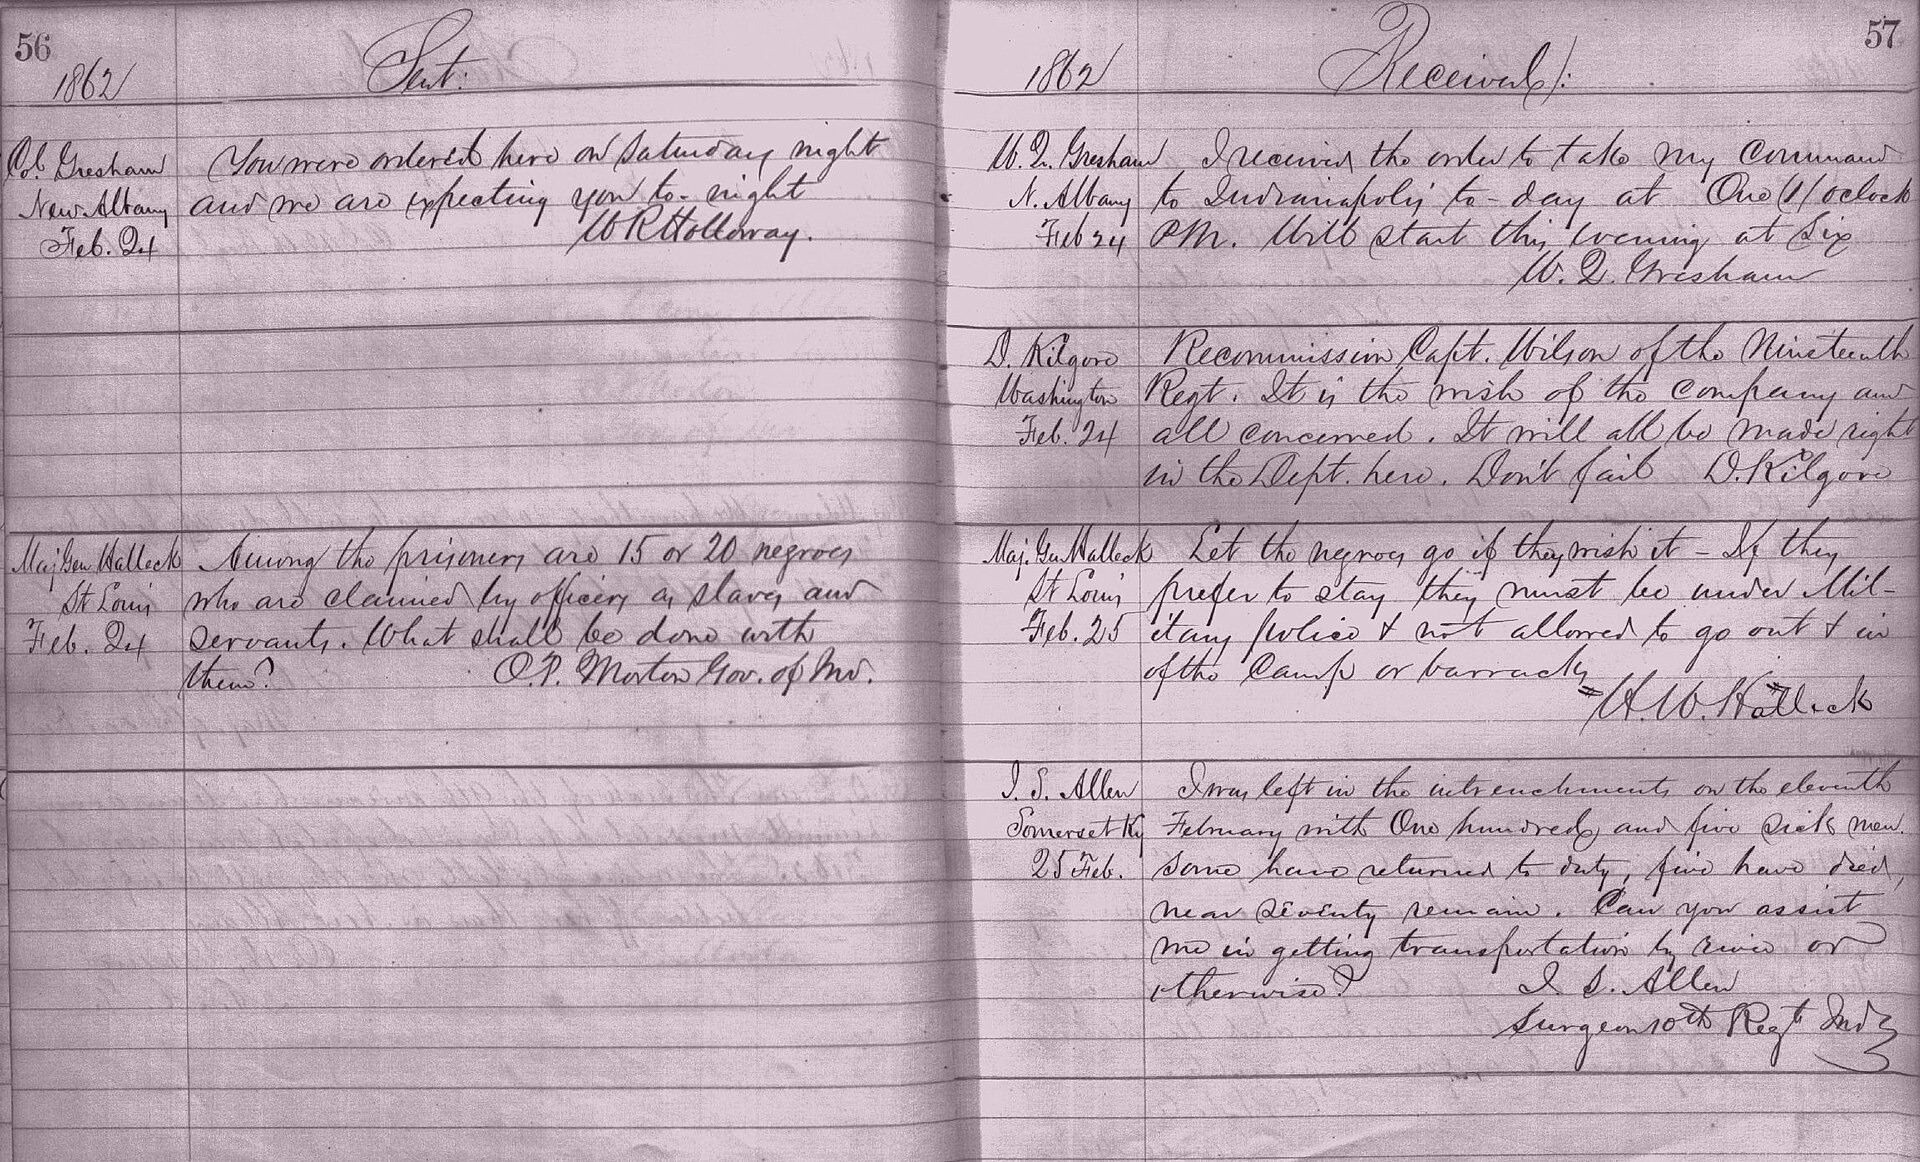 56
1862
Sent:
Col. Gresham
New Albany
Feb. 24
You were ordered here on Saturday night
and we are expecting you to-night
W R Holloway.
Maj Gen Halleck
St Louis
Feb. 24
Among the prisoners are 15 or 20 negroes
who are claimed by officers as slaves and
servants. What shall be done with
them?
O. P. Morton Gov. of Ind.
57
1862
Received:
W. Q. Gresham
N. Albany
Feb 24
I received the order to take my command
to Indianapolis to-day at One (1) oclock
P.M. Will start this evening at Six
W. Q. Gresham
D. Kilgore
Washington
Feb. 24
Recommission Capt. Wilson of the Nineteenth
Regt. It is the wish of the company and
all concerned. It will all be made right
in the Dept. here. Don't fail D. Kilgore
Maj. Gen Halleck
St Louis
Feb. 25
Let the negroes go if they wish it - If they
prefer to stay they must be under Mil-
itary police & not allowed to go out & in
of the Camp or barracks
H. W. Halleck
I. S. Allen
Somerset Ky
25 Feb.
I was left in the intrenchments on the eleventh
February with One hundred and five sick men.
Some have returned to duty, five have died,
near seventy remain. Can you assist
me in getting transportation by river or
otherwise?
I. S. Allen
Surgeon 10th Regt Ind